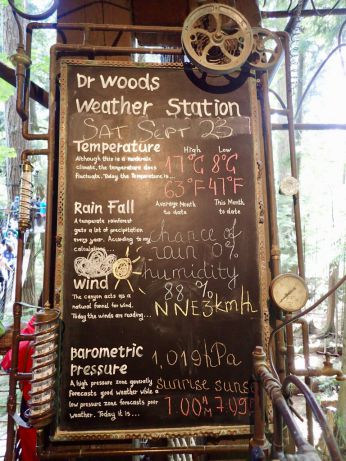 Dr Woods
Weather Station
Sat Sept 23
Temperature High Low
Although this is a moderate
climate, the temperature does
fluctuate. Today the Temperature is...
17°C 8°C
63°F 47°F
Rain Fall
Average Month to date
This Month to date
A temperate rainforest
gets a lot of precipitation
every year. According to my
calculations...
chance of
rain 0%
humidity
88%
Wind
The canyon acts as a
natural funnel for wind.
Today the winds are reading...
NNE 3km/h
Barometric
Pressure
A high pressure zone generally
forecasts good weather while a
low pressure zone forecasts poor
weather. Today it is...
1,019hPa
sunrise
7:00 AM
7:09